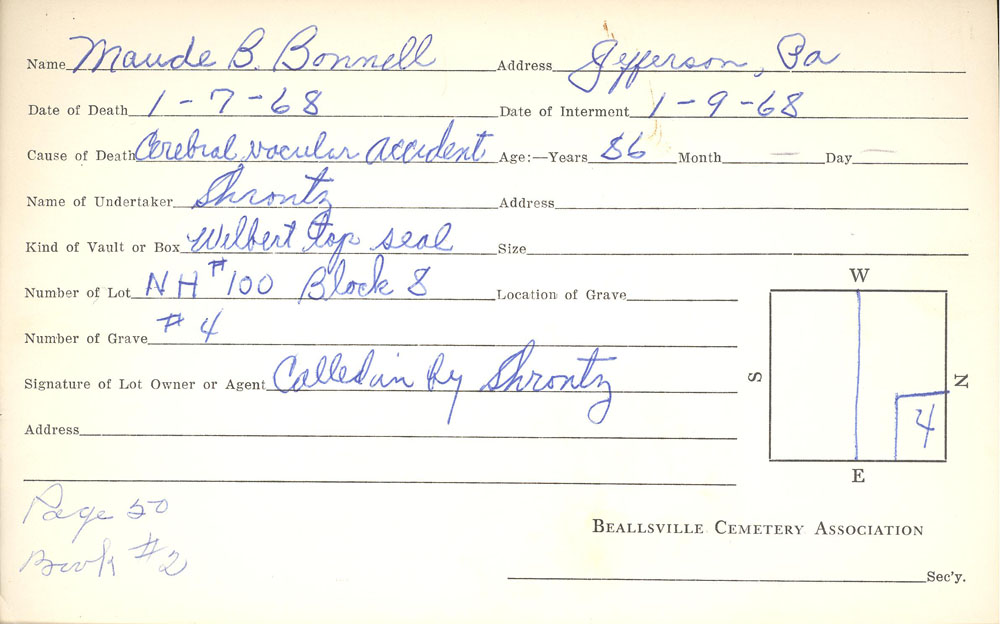 Name Maude B. Bonnell Address Jefferson, Pa
Date of Death 1-7-68 Date of Interment 1-9-68
Cause of Death Cerebral vacular accident Age:—Years 86 Month — Day —
Name of Undertaker Shrontz Address
Kind of Vault or Box Wilbert top seal Size
Number of Lot NH #100 Block 8 Location of Grave
Number of Grave #4
Signature of Lot Owner or Agent Called in by Shrontz
Address
W
S
N
4
E
Page 50
Book #2
Beallsville Cemetery Association
Sec'y.